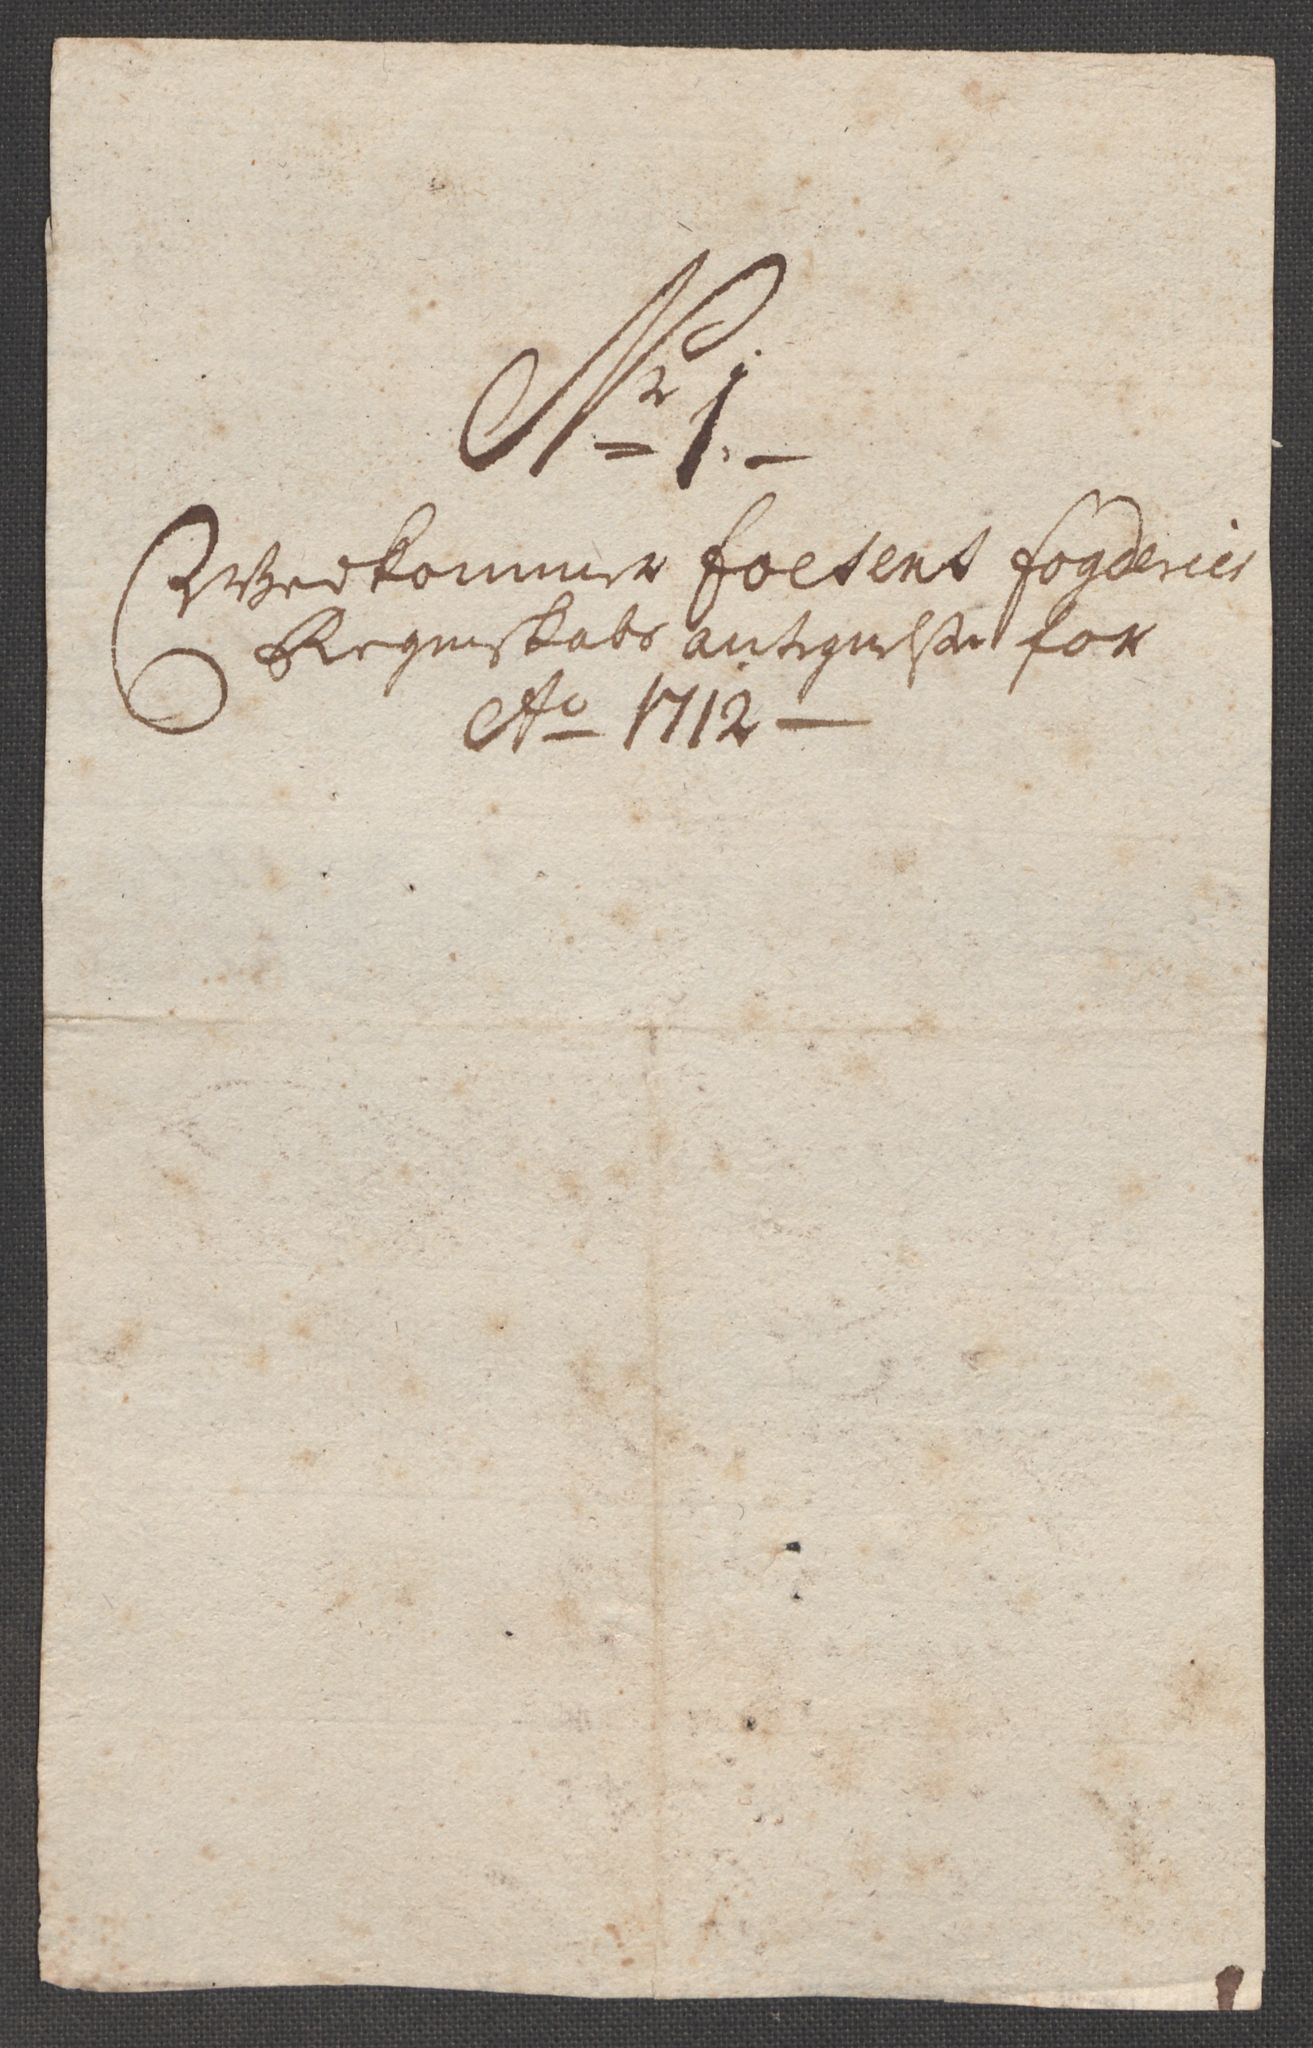 No 1.
Vedkommer Foesens Fogderies
Regenskabs Antegnelser for
Ao 1712